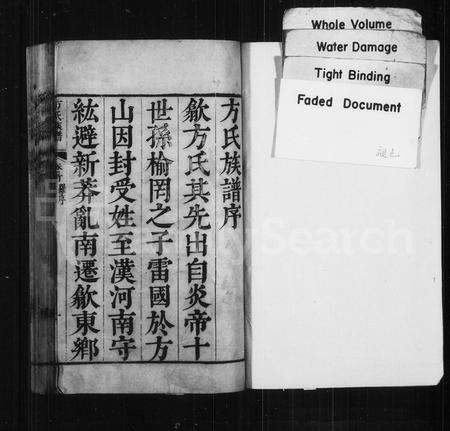 方氏族譜序
歙方氏其先出自炎帝十
世孫榆罔之子雷國於方
山因封受姓至漢河南守
紘避新莽亂南遷歙東鄉
Whole Volume
Water Damage
Tight Binding
Faded Document
褪色
FamilySearch